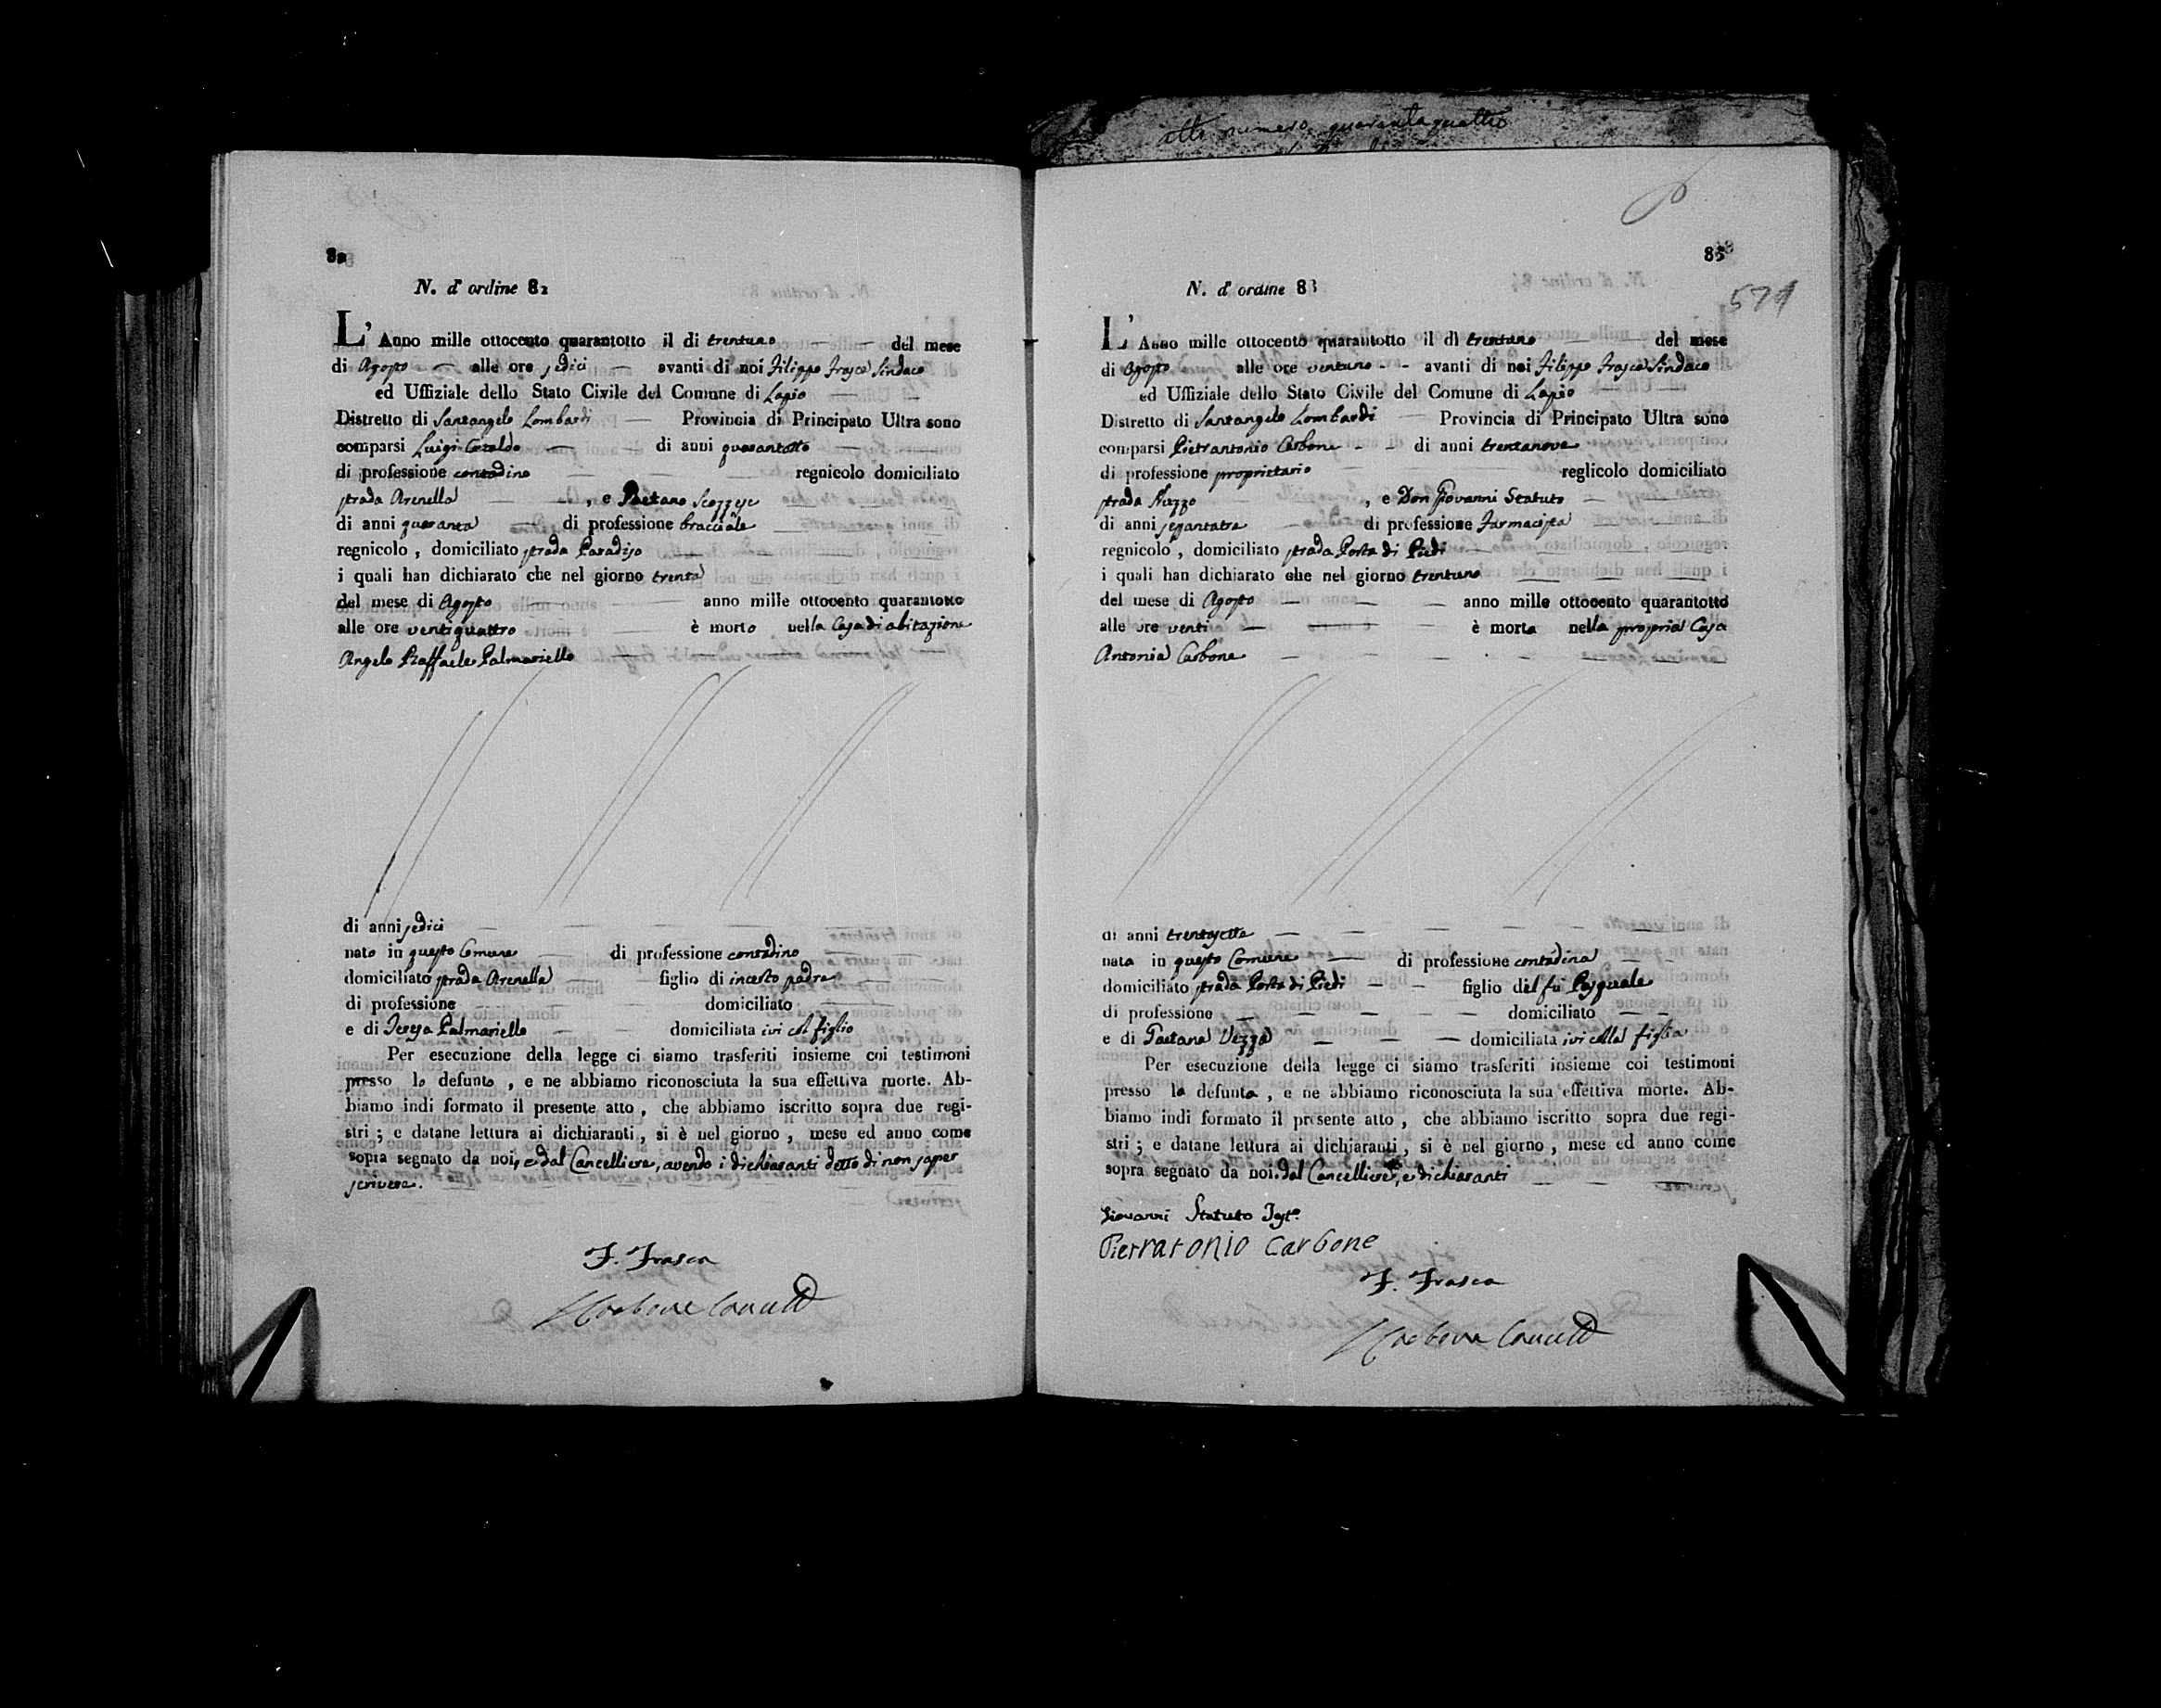 atto numero quarantaquattro
82
N. d' ordine 82
L' Anno mille ottocento quarantotto il di trentuno del mese
di Agosto alle ore sedici avanti di noi Filippo Frasca Sindaco
ed Uffiziale dello Stato Civile del Comune di Lapio
Distretto di Santangelo Lombardi Provincia di Principato Ultra sono
comparsi Luigi Cataldo di anni quarantotto
di professione contadino regnicolo domiciliato
strada Arenella , e Gaetano Scozzese
di anni quaranta di professione bracciale
regnicolo , domiciliato strada Paradiso
i quali han dichiarato che nel giorno trenta
del mese di Agosto anno mille ottocento quarantotto
alle ore ventiquattro è morto nella Casa di abitazione
Angelo Raffaele Palmariello
di anni sedici
nato in questo Comune di professione contadino
domiciliato strada Arenella figlio di incerto padre
di professione domiciliato
e di Teresa Palmariello domiciliata ivi col figlio
Per esecuzione della legge ci siamo trasferiti insieme coi testimoni
presso lo defunto , e ne abbiamo riconosciuta la sua effettiva morte. Ab-
biamo indi formato il presente atto , che abbiamo iscritto sopra due regi-
stri ; e datane lettura ai dichiaranti , si è nel giorno , mese ed anno come
sopra segnato da noi, e dal Cancelliere, avendo i dichiaranti detto di non saper
scrivere.
F. Frasca
Carbone Cancell
83
571
N. d' ordine 83
L' Anno mille ottocento quarantotto il di trentuno del mese
di Agosto alle ore ventuno avanti di noi Filippo Frasca Sindaco
ed Uffiziale dello Stato Civile del Comune di Lapio
Distretto di Santangelo Lombardi Provincia di Principato Ultra sono
comparsi Pietrantonio Carbone di anni trentanove
di professione proprietario reglicolo domiciliato
strada Nuzzo , e Don Giovanni Statuto
di anni sessantatre di professione Farmacista
regnicolo , domiciliato strada Porta di Piedi
i quali han dichiarato che nel giorno trentuno
del mese di Agosto anno mille ottocento quarantotto
alle ore venti è morta nella propria Casa
Antonia Carbone
di anni trentasette
nata in questo Comune di professione contadina
domiciliato strada Porta di Piedi figlio del fu Pasquale
di professione domiciliato
e di Gaetana Vezza domiciliata ivi colla figlia
Per esecuzione della legge ci siamo trasferiti insieme coi testimoni
presso la defunta , e ne abbiamo riconosciuta la sua effettiva morte. Ab-
biamo indi formato il presente atto , che abbiamo iscritto sopra due regi-
stri ; e datane lettura ai dichiaranti , si è nel giorno , mese ed anno come
sopra segnato da noi. dal Cancelliere, e dichiaranti
Giovanni Statuto Testo
Pietratonio Carbone
F. Frasca
Carbone Cancell